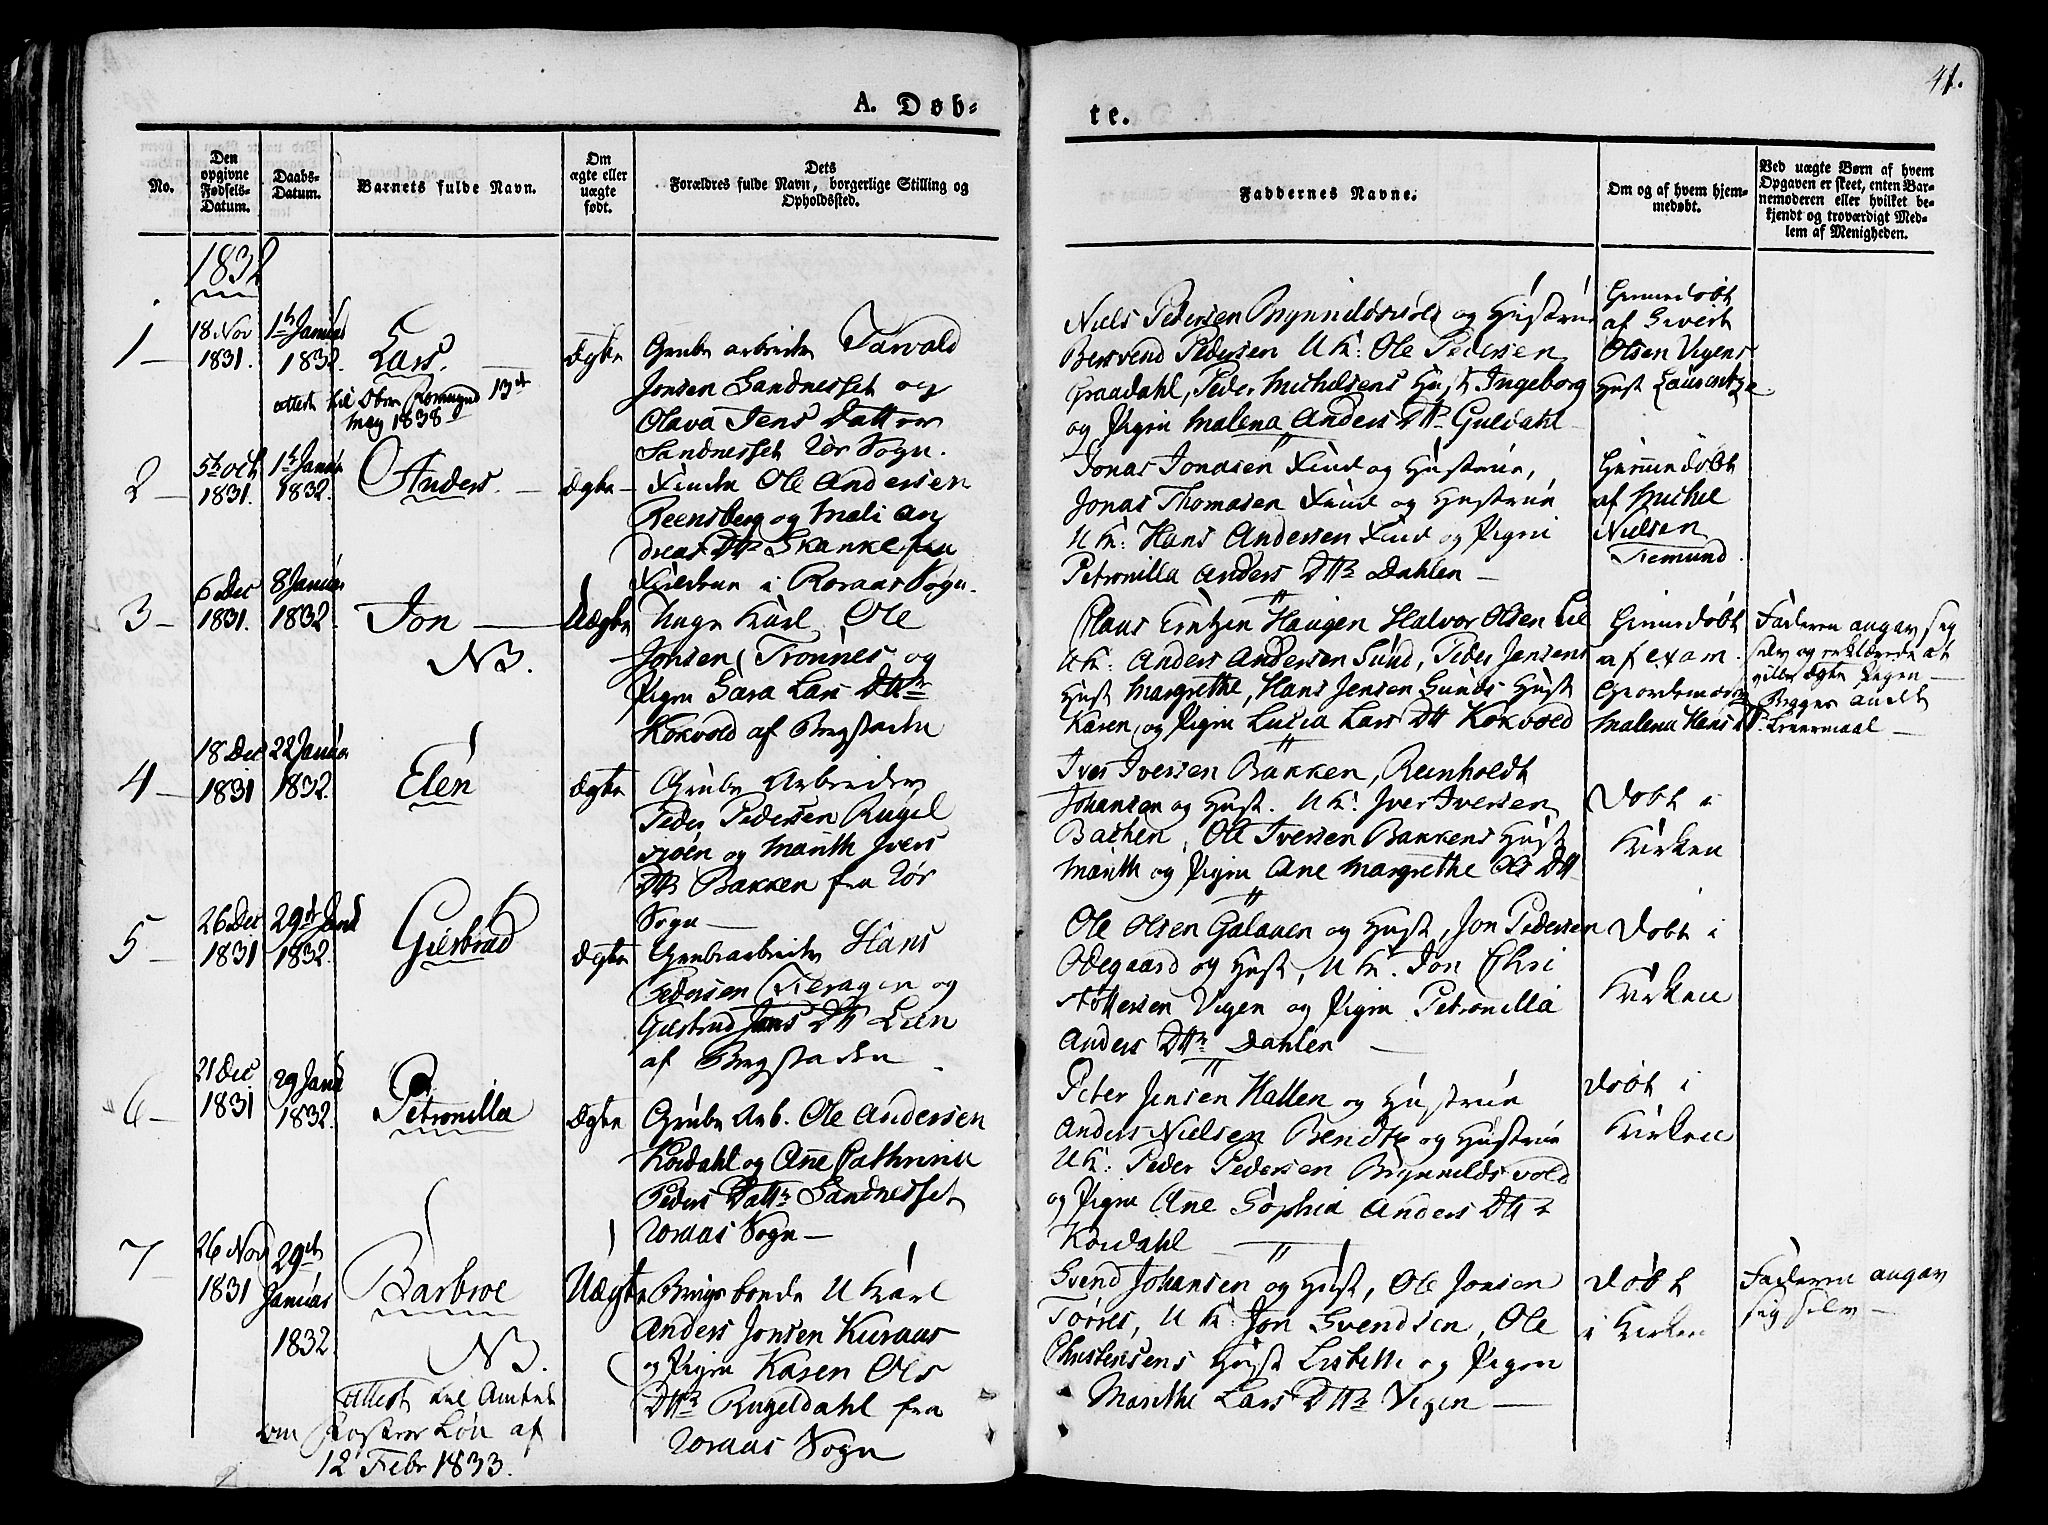 41.
A. Døb-
te.
No.
Den opgivne Fødsels-Datum.
Daabs-Datum.
Barnets fulde Navn.
Om ægte eller uægte født.
Dets Forældres fulde Navn, borgerlige Stilling og Opholdssted.
Faddernes Navne.
Om og af hvem hjemmedøbt.
Ved uægte Børn af hvem Opgaven er skeet, enten Barnemoderen eller hvilket bekjendt og troværdigt Medlem af Menigheden.
1832
1
18 Nov
1831.
1st Januar
1832.
Lars.
Attest til
13de
May 1838
Ægte
Grube arbeider Tarvald
Jonsen Sandnesset og
Olava Jens Datter
Sandnesset Rør Sogn.
Niels Pedersen Brynnildsvold og Hustrue
Bersvend Pedersen U K: Ole Pedersen
Graadahl, Peder Michelsens Hust Ingeborg
og Pigen Malena Anders Dtr Guldahl
Hiemedøbt
af Sivert
Olsen Vigens
Hust Laurentze
2
5te oct
1831.
1st Januar
1832.
Anders.
Ægte
Ole Andersen
Reensberg og Mali An
dreas Dtr Skanke fra
i Roraas Sogn.
Jonas Jonasen Find og Hustrue,
Jonas Thomasen Find og Hustrue
U K: Hans Andersen Find og Pigen
Petronilla Anders Dtr Dahlen
Hiemmedøbt
af Michel
Nielsen
Femund.
3
6 Dec
1831.
8 Januar
1832
Jon
NB.
Uægte
Unge Karl Ole
Jonsen Trønnes og
Pigen Sara Lars Dtr
Kokvold af Bergstaden
Claus Erntzen Haugen Halvor Olsen Lie
U K: Anders Andersen Sund, Peder Jensens
Hust Margrethe, Hans Jensen Sunds Hust
Karen, og Pigen Lucia Lars Dtt Kokvold
Hiemedøbt
af exam.
Giordemoder
Malena Hans Dtr.
Faderen angav sig
selv og erklærede at
ville ægte Pigen
Begges andet
Leiermaal
4
18 Dec
1831
22 Januar
1832.
Elen
Ægte
Grube Arbeider
Peder Pedersen Rugel
sjøen og Marith Ivers
Dtr Bakken fra Rør
Sogn
Iver Iversen Bakken, Reinholdt
Johansen og Hust. U K: Iver Iversen
Bachen, Ole Iversen Bakkens Hust
Marith og Pigen Ane Margrethe Ols Dtt
Døbt i
Kirken
5
26 Dec
1831
29de Janu
1832.
Giertrud
Ægte
Grubearbeider Hans
Pedersen Feragen og
Giertrud Jons Dtt Lien
af Bergstaden
Ole Olsen Galaaen og Hust, Jon Pedersen
Ødegaard og Hust, U K. Jon Chri
støffersen Vigen og Pigen Petronilla
Anders Dtr Dahlen
Døbt i
Kirken
6
21 Dec
1831
29 Janu
1832.
Petronilla
Ægte
Grube Arb. Ole Andersen
Kordahl og Ane Cathrina
Peders Dattr Sandnesset
Roraas Sogn
Peter Jensen Hallen og Hustrue
Anders Nielsen Bendtz og Hustrue
U K: Peder Pedersen Brynnilds vold
og Pigen Ane Sophia Anders Dtr
Kordahl
Døbt i
Kirken
7
26 Nov
1831
29de
Januar
1832.
Barbroe
NB.
Attest til Amtet
om af
12 Febr 1833.
Uægte
U Karl
Anders Jonsen Kuraas
og Pigen Karen Ols
Dtr Rugeldahl fra
Roraas Sogn
Svend Johansen og Hust, Ole Jonsen
Tørres, U K: Jon Svendsen, Ole
Christensens Hust Lisbeth og Pigen
Marithe Lars Dtr Vigen
Døbt
i Kirken
Faderen angav
sig selv